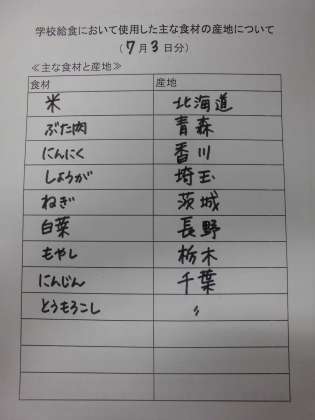 学校給食において使用した主な食材の産地について
（7月3日分）
≪主な食材と産地≫
食材 産地
米 北海道
ぶた肉 青森
にんにく 香川
しょうが 埼玉
ねぎ 茨城
白菜 長野
もやし 栃木
にんじん 千葉
とうもろこし 〃